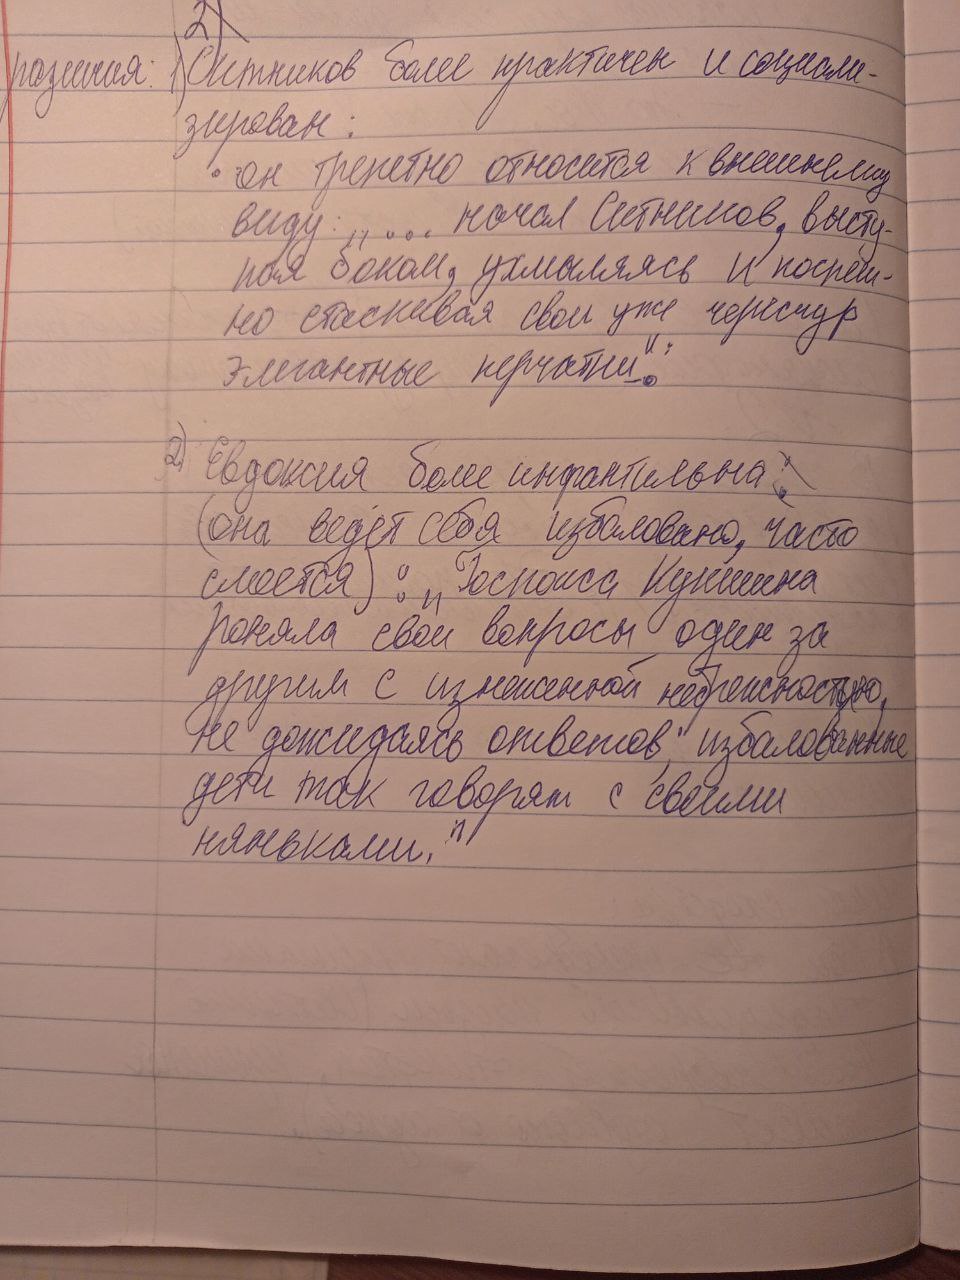 2)
различия: 1) Ситников более практичен и социали-
зирован:
• он трепетно относится к внешнему
виду: „... начал Ситников, высту-
пая боком, ухмыляясь и поспеш-
но стаскивая свои уже чересчур
элегантные перчатки".
2) Евдоксия более инфантильна:
(она ведёт себя избаловано, часто
смеётся): „Госпожа Кукшина
роняла свои вопросы один за
другим с изнеженной небрежностью,
не дожидаясь ответов; избалованные
дети так говорят с своими
няньками."